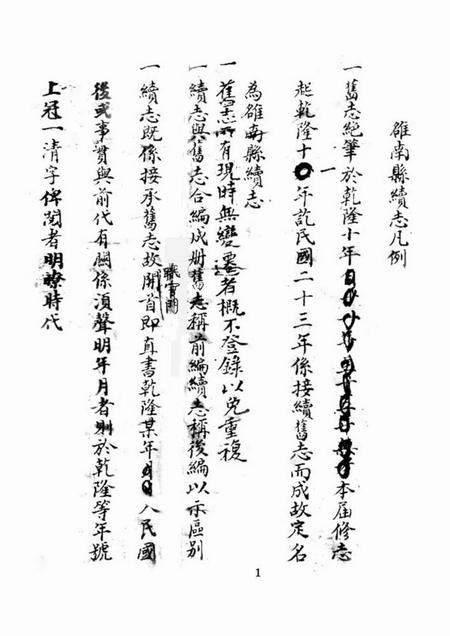 雒南縣續志凡例
一舊志絕筆於乾隆十年本屆修志
起乾隆十一年訖民國二十三年係接續舊志而成故定名
為雒南縣續志
一舊志所有現時無變遷者概不登錄以免重複
一續志與舊志合編成册舊志稱前編續志稱後編以示區别
一續志既係接承舊志故開首即直書乾隆某年八民國
後或事實與前代有關係須聲明年月者則於乾隆等年號
上冠一清字俾閱者明瞭時代
1